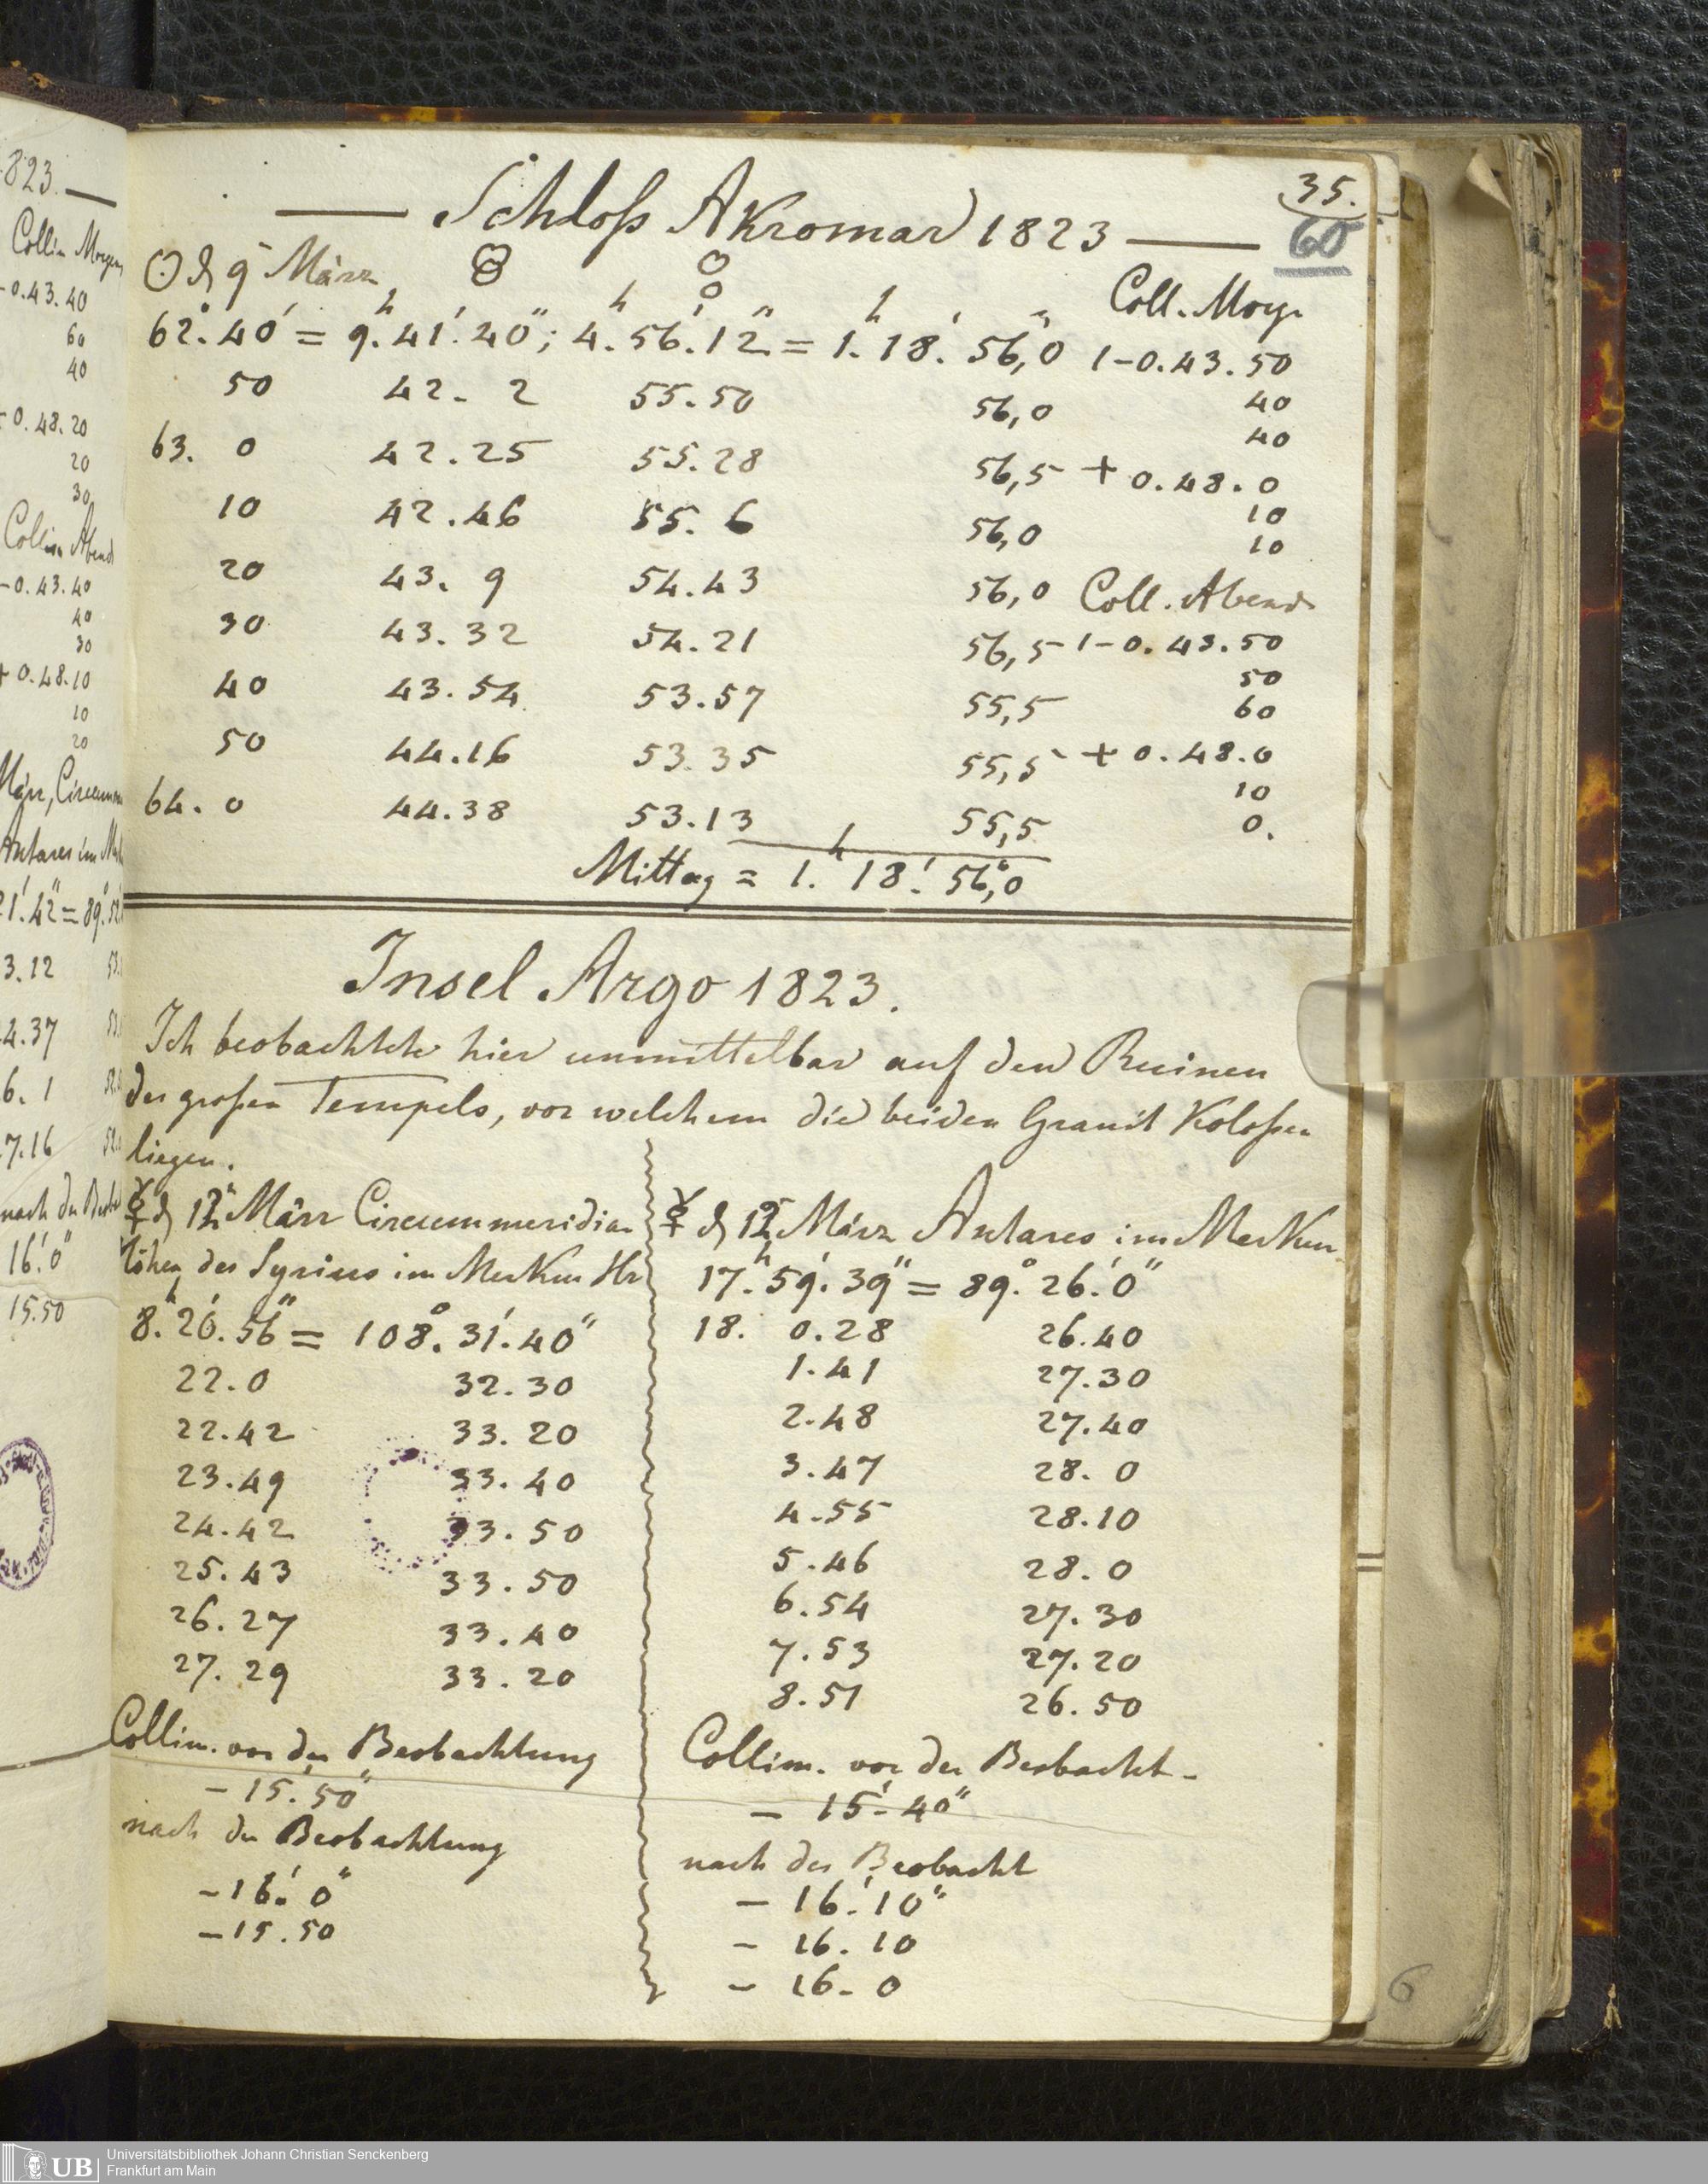 35.
60
Schloß Akromar 1823
☉ d 9n März
Coll. Morg.
62°. 40' = 9h. 41'. 40"; 4h. 56'. 12" = 1h. 18'. 56,"0 1-0.43.50
50 42. 2 55.50 56,0 40
40
63. 0 42.25 55.28 56,5 + 0.48.0
10 42.46 55. 6 56,0 10
10
20 43. 9 54.43 56,0 Coll. Abend
30 43.32 54.21 56,5 1-0.43.50
50
40 43.54 53.57 55,5 60
50 44.16 53.35 55,5 + 0.48.0
10
64. 0 44.38 53.13 55,5 0.
Mittag = 1h. 18'. 56,"0
Insel Argo 1823.
Ich beobachtete hier unmittelbar auf den Ruinen
des großen Tempels, vor welchem die beiden Granit Kolossen
liegen.
☿ d 12n März Circummeridian
höhen des Syrius im Merkur Hr
8h. 20'. 56" = 108°. 31'. 40"
22.0 32.30
22.42 33.20
23.49 33.40
24.42 33.50
25.43 33.50
26.27 33.40
27.29 33.20
Collim. vor der Beobachtung
- 15'. 50"
nach der Beobachtung
- 16'. 0"
- 15.50
☿ d 12n März Antares im Merkur
17h. 59'. 39" = 89°. 26'. 0"
18. 0.28 26.40
1.41 27.30
2.48 27.40
3.47 28. 0
4.55 28.10
5.46 28.0
6.54 27.30
7.53 27.20
8.51 26.50
Collim. vor der Beobacht-
- 15'. 40"
nach der Beobacht
- 16'. 10"
- 16. 10
- 16. 0
6
823.
Collim Morgen
-0.43.40
60
40
+0.48.20
20
30
Collim Abend
-0.43.40
40
30
+0.48.10
10
20
März, Circumm
Antares im M
21'.42" = 89°.52
3.12
4.37
6.1
7.16
nach der Beob
16'.0"
15.50
UB
Universitätsbibliothek Johann Christian Senckenberg
Frankfurt am Main